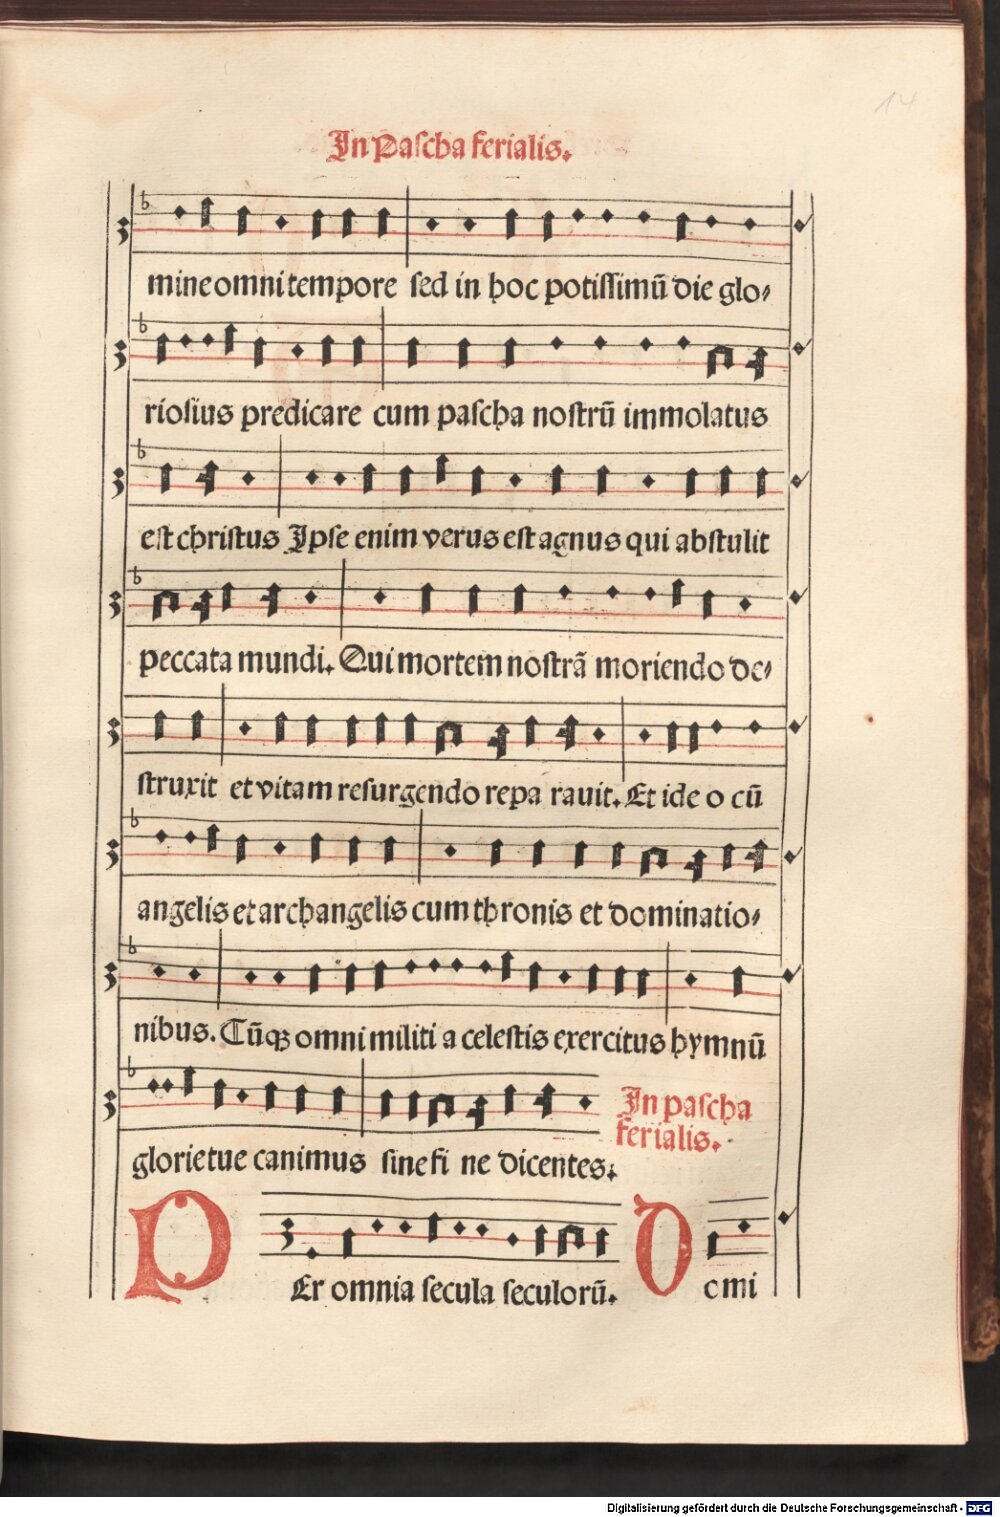 14
In Paſcha ferialis.
mine omni tempore ſed in hoc potiſſimū die glo⸗
rioſius predicare cum paſcha noſtrū immolatus
eſt chriſtus Ipſe enim verus eſt agnus qui abſtulit
peccata mundi. Qui mortem noſtrā moriendo de⸗
ſtruxit et vitam reſurgendo repa rauit. Et ide o cū
angelis et archangelis cum thronis et dominatio⸗
nibus. Cūqꝫ omni militi a celeſtis exercitus hymnū
glorie tue canimus ſine fi ne dicentes.
In paſcha
ferialis.
PEr omnia ſecula ſeculorū. Domi
Digitalisierung gefördert durch die Deutsche Forschungsgemeinschaft - DFG